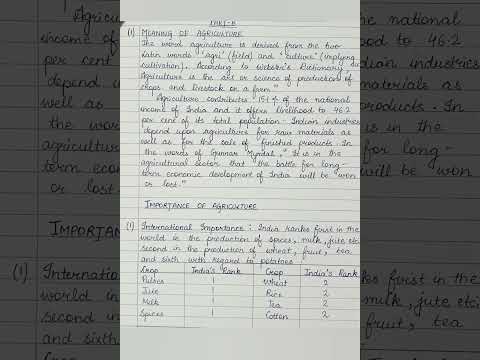 PART-B
(1) MEANING OF AGRICULTURE
The word agriculture is derived from the two
Latin words 'agri' (field) and 'cultura' (implying
cultivation). According to Webster's Dictionary,
"Agriculture is the art or science of production of
crops and livestock on a farm."
Agriculture contributes 15.1% of the national
income of India and it offers livelihood to 46.2
per cent of its total population. Indian industries
depend upon agriculture for raw materials as
well as for the sale of finished products. In
the words of Gunnar Myrdal, "It is in the
agricultural sector that the battle for long-
term economic development of India will be won
or lost."
IMPORTANCE OF AGRICULTURE
(1) International Importance: India ranks first in the
world in the production of spices, milk, jute etc,
second in the production of wheat, fruit, tea
and sixth with regard to potatoes
Crop India's Rank Crop India's Rank
Pulses 1 Wheat 2
Jute 1 Rice 2
Milk 1 Tea 2
Spices 1 Cotton 2